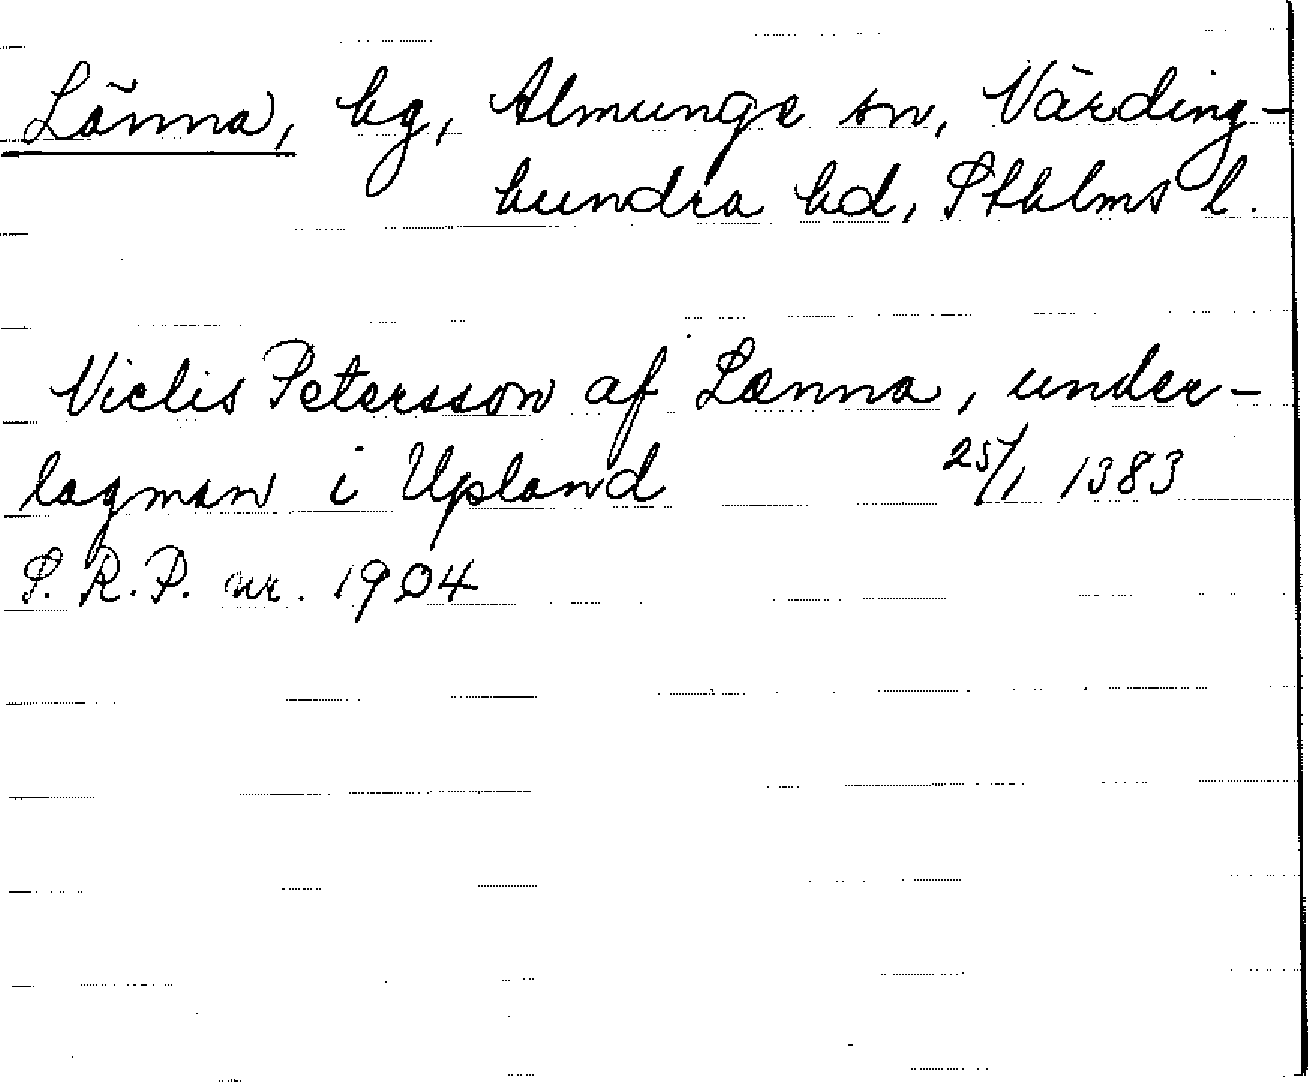 Länna, by, Almunge sn, Närding-
hundra hd, Sthlms l.
Niclis Petersson af Lænna, under-
lagman i Upland 25/1 1383
S. R. P. nr. 1904